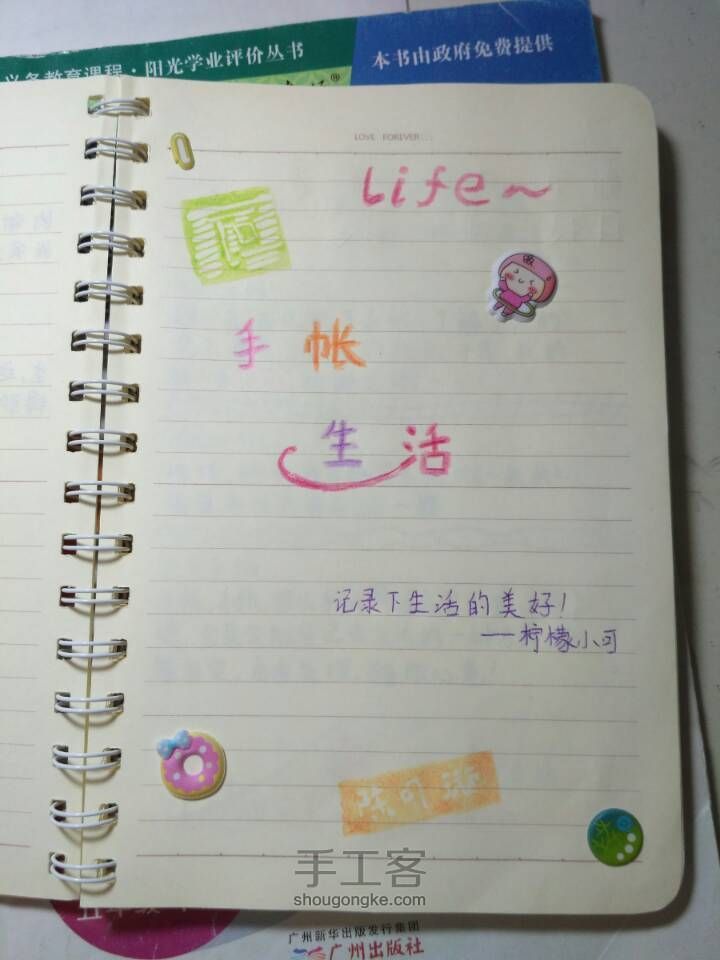 义务教育课程·阳光学业评价丛书
本书由政府免费提供
LOVE FOREVER...
Life～
手帐
生活
记录下生活的美好！
——柠檬小可
手工客
shougongke.com
广州新华出版发行集团
广州出版社